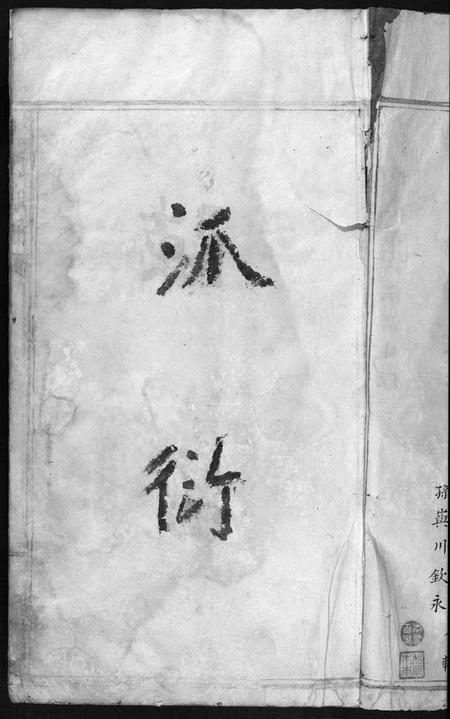 派
衍
孫與川欽永